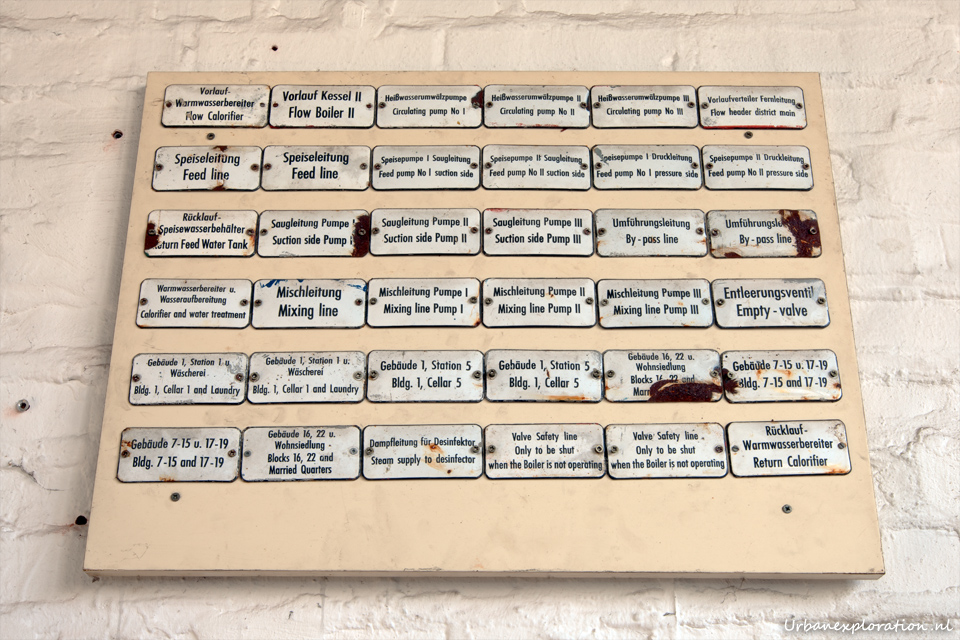 Vorlauf-
Warmwasserbereiter
Flow Calorifier
Vorlauf Kessel II
Flow Boiler II
Heißwasserumwälzpumpe
Circulating pump No I
Heißwasserumwälzpumpe II
Circulating pump No II
Heißwasserumwälzpumpe III
Circulating pump No III
Vorlaufverteiler Fernleitung
Flow header district main
Speiseleitung
Feed line
Speiseleitung
Feed line
Speisepumpe I Saugleitung
Feed pump No I suction side
Speisepumpe II Saugleitung
Feed pump No II suction side
Speisepumpe I Druckleitung
Feed pump No I pressure side
Speisepumpe II Druckleitung
Feed pump No II pressure side
Rücklauf-
Speisewasserbehälter
Return Feed Water Tank
Saugleitung Pumpe
Suction side Pump
Saugleitung Pumpe II
Suction side Pump II
Saugleitung Pumpe III
Suction side Pump III
Umführungsleitung
By-pass line
By-pass line
Warmwasserbereiter u.
Wasseraufbereitung
Calorifier and water treatment
Mischleitung
Mixing line
Mischleitung Pumpe I
Mixing line Pump I
Mischleitung Pumpe II
Mixing line Pump II
Mischleitung Pumpe III
Mixing line Pump III
Entleerungsventil
Empty-valve
Gebäude 1, Station 1 u.
Wäscherei
Bldg. 1, Cellar 1 and Laundry
Gebäude 1, Station 1 u.
Wäscherei
Bldg. 1, Cellar 1 and Laundry
Gebäude 1, Station 5
Bldg. 1, Cellar 5
Gebäude 1, Station 5
Bldg. 1, Cellar 5
Gebäude 16, 22 u.
Wohnsiedlung
Blocks 16, 22 and
Gebäude 7-15 u. 17-19
Bldg. 7-15 and 17-19
Gebäude 7-15 u. 17-19
Bldg. 7-15 and 17-19
Gebäude 16, 22 u.
Wohnsiedlung
Blocks 16, 22 and
Married Quarters
Dampfleitung für Desinfektor
Steam supply to desinfector
Valve Safety line
Only to be shut
when the Boiler is not operating
Valve Safety line
Only to be shut
when the Boiler is not operating
Rücklauf-
Warmwasserbereiter
Return Calorifier
Urbanexploration.nl